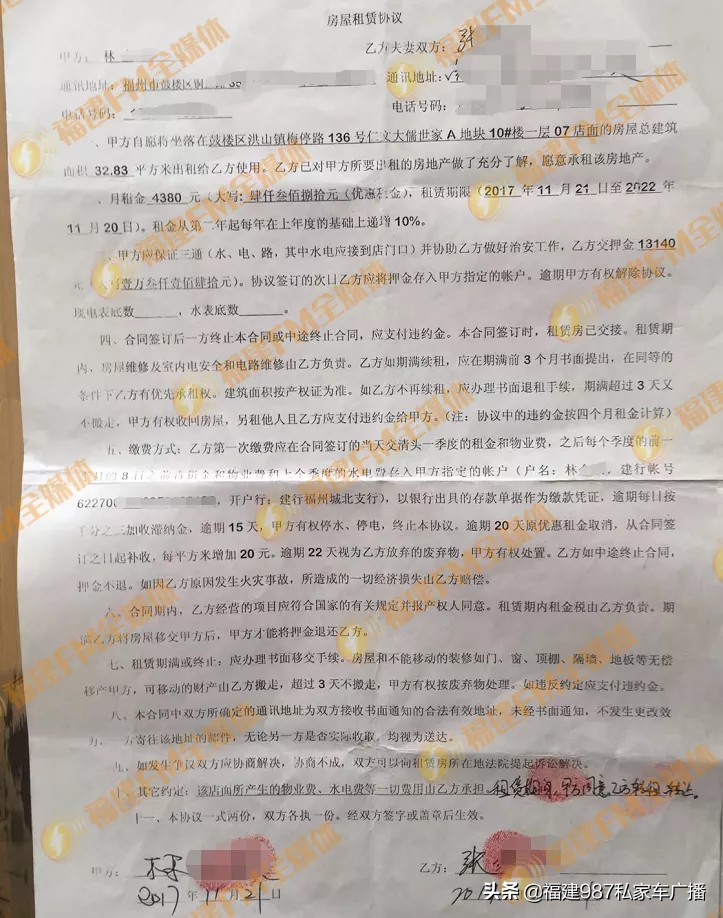 房屋租赁协议
甲方：林
乙方夫妻双方：张
通讯地址：福州市鼓楼区铜
通讯地址：
电话号码：
电话号码：
、甲方自愿将坐落在鼓楼区洪山镇梅停路 136 号仁文大儒世家 A 地块 10#楼一层 07 店面的房屋总建筑
面积 32.83 平方米出租给乙方使用。乙方已对甲方所要出租的房地产做了充分了解，愿意承租该房地产。
、月租金 4380 元（大写：肆仟叁佰捌拾元（优惠租金），租赁期限（2017 年 11 月 21 日至 2022 年
11 月 20 日）。租金从第二年起每年在上年度的基础上递增 10%。
、甲方应保证三通（水、电、路，其中水电应接到店门口）并协助乙方做好治安工作，乙方交押金 13140
元（大写壹万叁仟壹佰肆拾元）。协议签订的次日乙方应将押金存入甲方指定的帐户。逾期甲方有权解除协议。
现电表底数______，水表底数______。
四、合同签订后一方终止本合同或中途终止合同，应支付违约金。本合同签订时，租赁房已交接。租赁期
内、房屋维修及室内电安全和电路维修由乙方负责。乙方如期满续租，应在期满前 3 个月书面提出，在同等的
条件下乙方有优先承租权。建筑面积按产权证为准。如乙方不再续租，应办理书面退租手续，期满超过 3 天又
不搬走，甲方有权收回房屋，另租他人且乙方应支付违约金给甲方。（注：协议中的违约金按四个月租金计算）
五、缴费方式：乙方第一次缴费应在合同签订的当天交清头一季度的租金和物业费，之后每个季度的前一
月的 8 日之前应将租金和物业费和上个季度的水电费存入甲方指定的帐户（户名：林，建行帐号
62270，开户行：建行福州城北支行），以银行出具的存款单据作为缴款凭证，逾期每日按
千分之三加收滞纳金，逾期 15 天，甲方有权停水、停电，终止本协议。逾期 20 天原优惠租金取消，从合同签
订之日起补收，每平方米增加 20 元。逾期 22 天视为乙方放弃的废弃物，甲方有权处置。乙方如中途终止合同，
押金不退。如因乙方原因发生火灾事故，所造成的一切经济损失由乙方赔偿。
六、合同期内，乙方经营的项目应符合国家的有关规定并报产权人同意。租赁期内租金税由乙方负责。期
满乙方将房屋移交甲方后，甲方才能将押金退还乙方。
七、租赁期满或终止：应办理书面移交手续。房屋和不能移动的装修如门、窗、顶棚、隔墙、地板等无偿
移产甲方，可移动的财产由乙方搬走，超过 3 天不搬走，甲方有权按废弃物处理。如违反约定应支付违约金。
八、本合同中双方所确定的通讯地址为双方接收书面通知的合法有效地址，未经书面通知，不发生更改效
力，一方寄往该地址的邮件，无论另一方是否实际收取，均视为送达。
九、如发生争议双方应协商解决，协商不成，双方可以向租赁房所在地法院提起诉讼解决。
十、其它约定：该店面所产生的物业费、水电费等一切费用由乙方承担。租赁期间，甲方同意乙方转租、转让。
十一、本协议一式两份，双方各执一份。经双方签字或盖章后生效。
甲方：林
乙方：张
2017 年 11 月 21 日
头条 @福建987私家车广播
福建FM全媒体